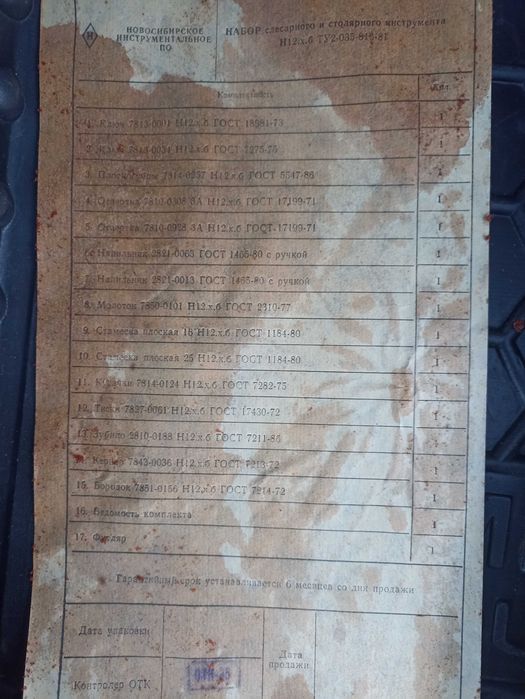 Н
НОВОСИБИРСКОЕ
ИНСТРУМЕНТАЛЬНОЕ
ПО
НАБОР слесарного и столярного инструмента
Н12.х.б ТУ2-035-816-81
Комплектность
Кол.
1. Ключ 7813-0001 Н12.х.б ГОСТ 18981-73 1
2. 7275-75 1
3. 7814-0257 Н12.х.б ГОСТ 5547-86 1
4. Отвертка 7810-0308 3А Н12.х.б ГОСТ 17199-71 1
5. Отвертка 7810-0928 3А Н12.х.б ГОСТ 17199-71 1
6. Напильник 2821-0065 ГОСТ 1465-80 с ручкой 1
7. Напильник 2821-0013 ГОСТ 1465-80 с ручкой 1
8. Молоток 7850-0101 Н12.х.б ГОСТ 2310-77 1
9. Стамеска плоская 16 Н12.х.б ГОСТ 1184-80 1
10. Стамеска плоская 25 Н12.х.б ГОСТ 1184-80 1
11. Кусачки 7814-0124 Н12.х.б ГОСТ 7282-75 1
12. Тиски 7827-0061 Н12.х.б ГОСТ 17430-72 1
13. Зубило 2810-0188 Н12.х.б ГОСТ 7211-86 1
14. Кернер 7843-0036 Н12.х.б ГОСТ 7213-72 1
15. Бородок 7851-0156 Н12.х.б ГОСТ 7214-72 1
16. Ведомость комплекта 1
17. Футляр 1
Гарантийный срок устанавливается 6 месяцев со дня продажи
Дата упаковки
Дата
продажи
Контролер ОТК
ОТК